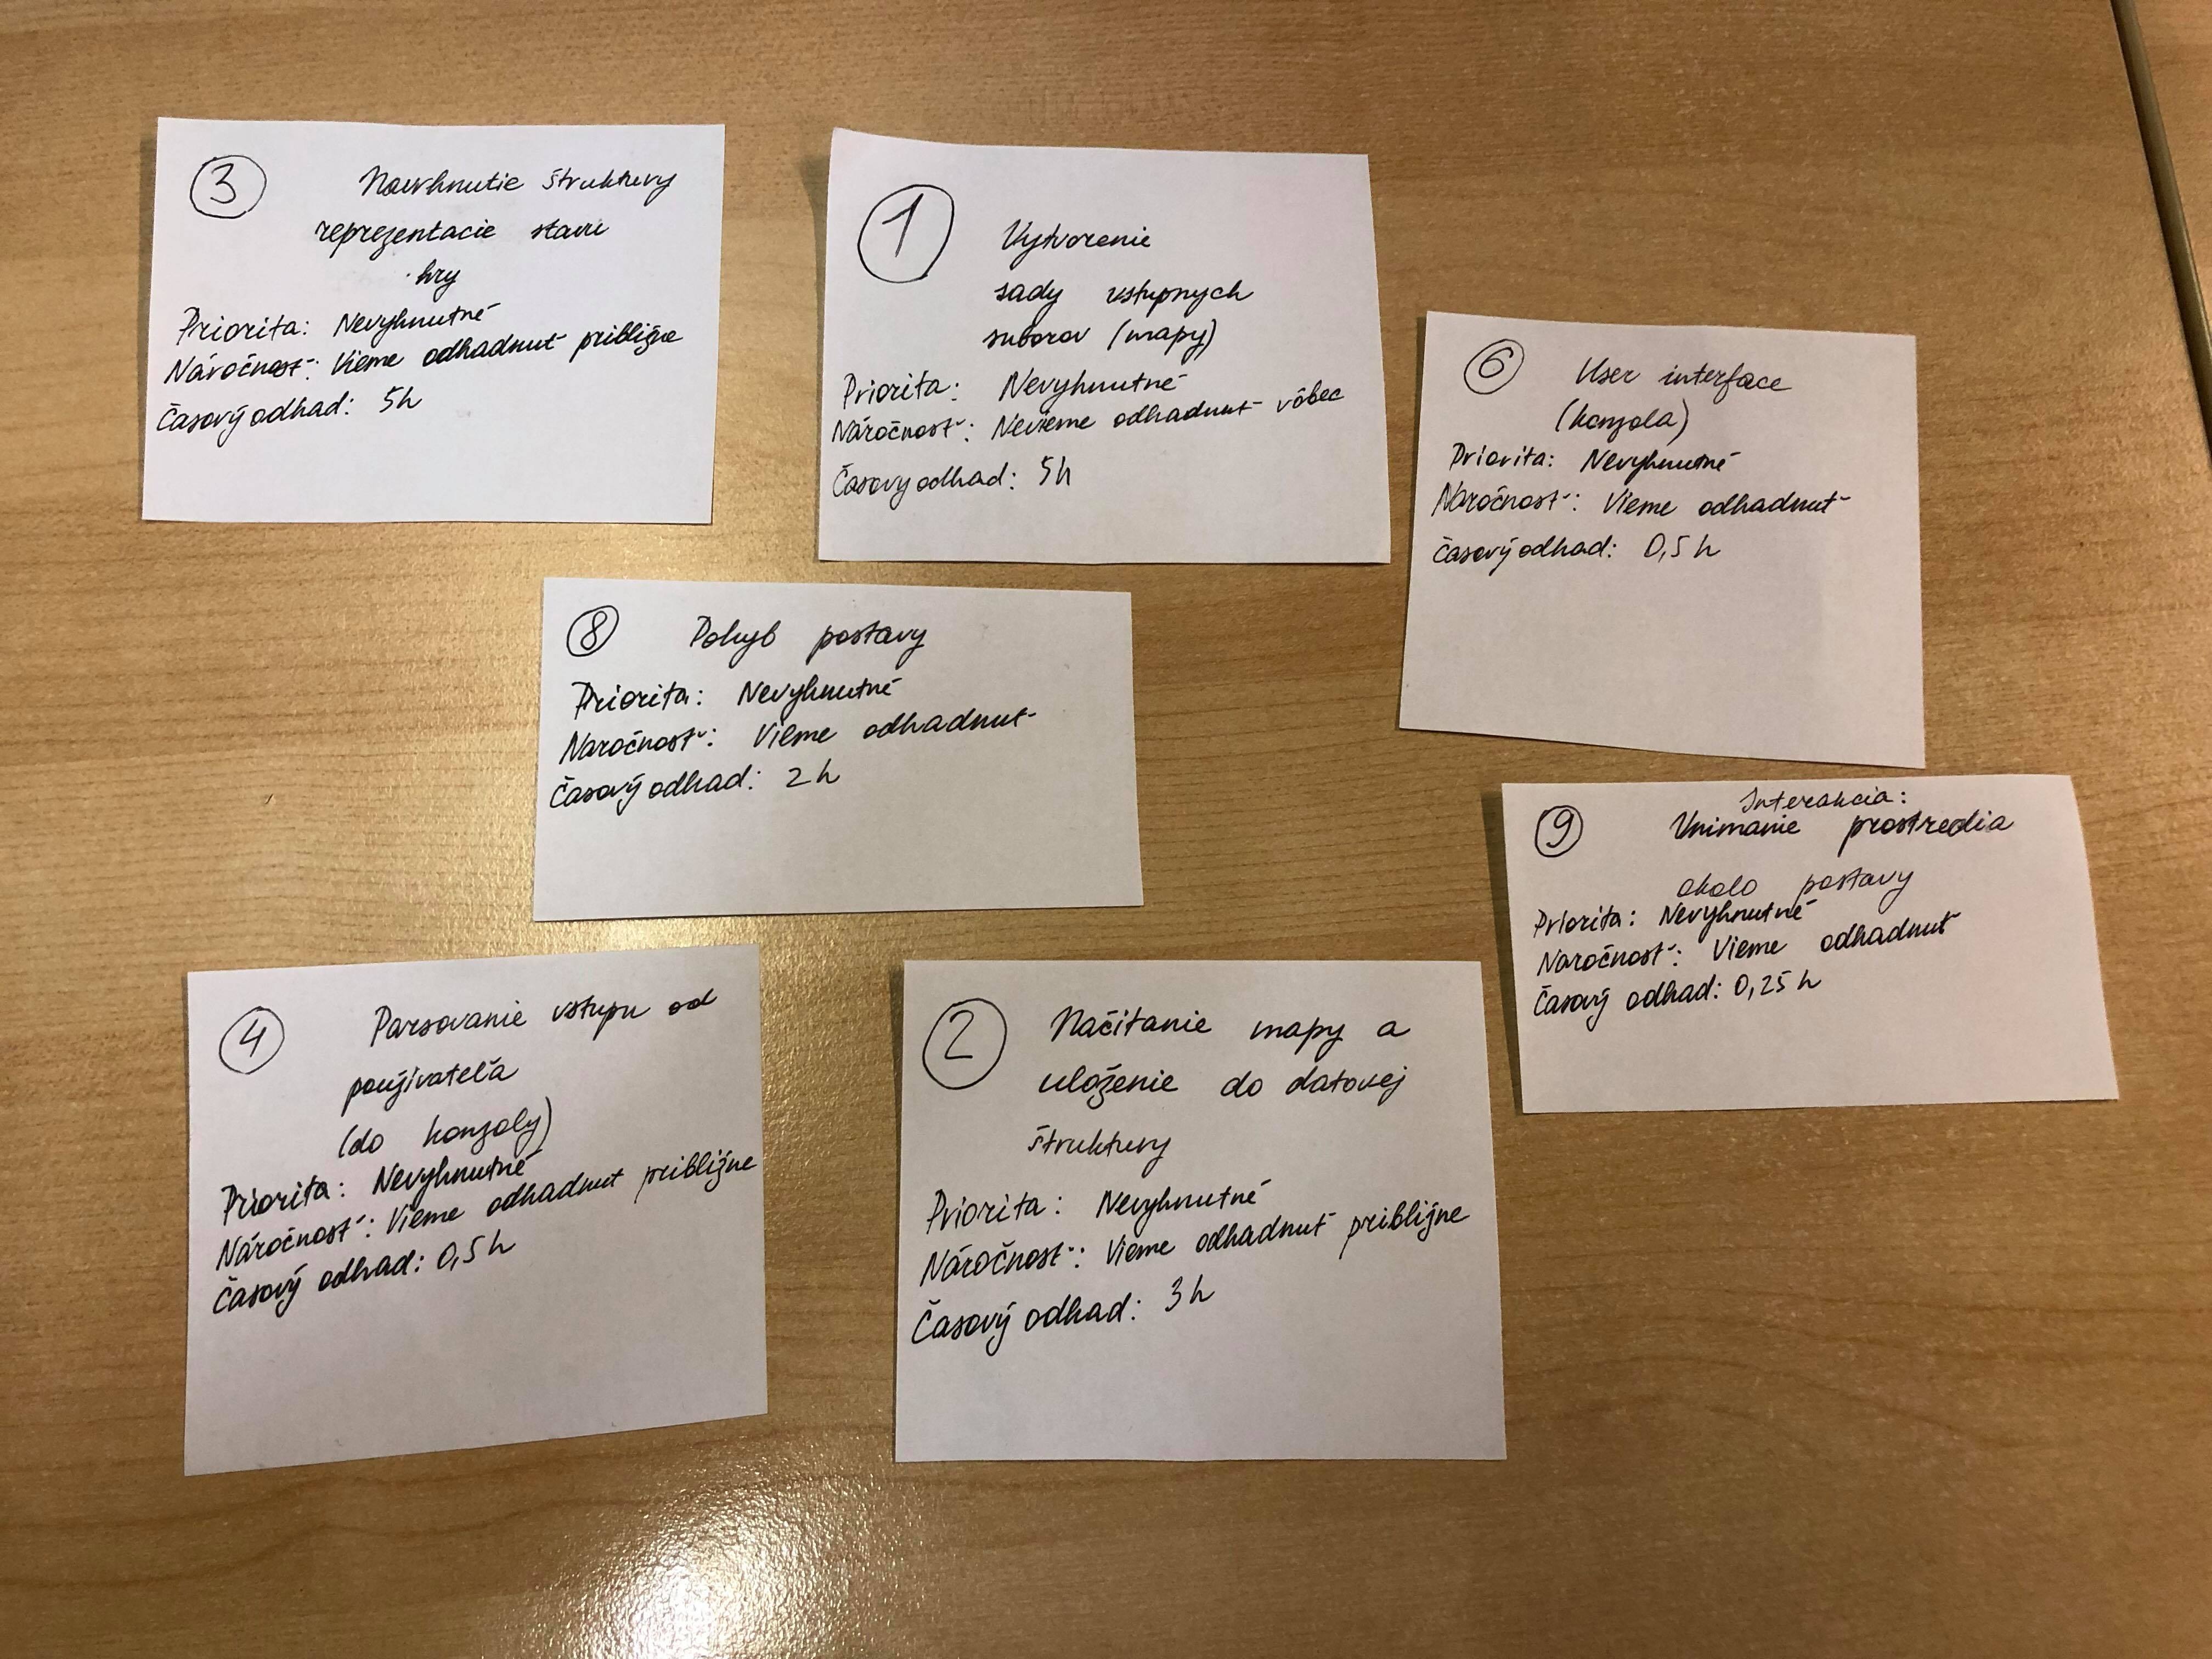 3
Navrhnutie štruktury
reprezentacie stavu
hry
Priorita: Nevyhnutné
Náročnosť: Vieme odhadnuť približne
Časový odhad: 5h
1
Vytvorenie
sady vstupnych
suborov (mapy)
Priorita: Nevyhnutné
Náročnosť: Nevieme odhadnuť vôbec
Časovy odhad: 5h
6
User interface
(konzola)
Priorita: Nevyhnutné
Naročnosť: Vieme odhadnuť
Časový odhad: 0,5 h
8
Pohyb postavy
Priorita: Nevyhnutné
Naročnosť: Vieme odhadnuť
Časový odhad: 2 h
9
Interakcia:
Vnimanie prostredia
okolo postavy
Priorita: Nevyhnutné
Naročnosť: Vieme odhadnuť
Časový odhad: 0,25 h
4
Parsovanie vstupu od
použivateľa
(do konzoly)
Priorita: Nevyhnutné
Náročnosť: Vieme odhadnuť približne
Časový odhad: 0,5 h
2
Načitanie mapy a
uloženie do datovej
štruktury
Priorita: Nevyhnutné
Náročnosť: Vieme odhadnuť približne
Časový odhad: 3 h